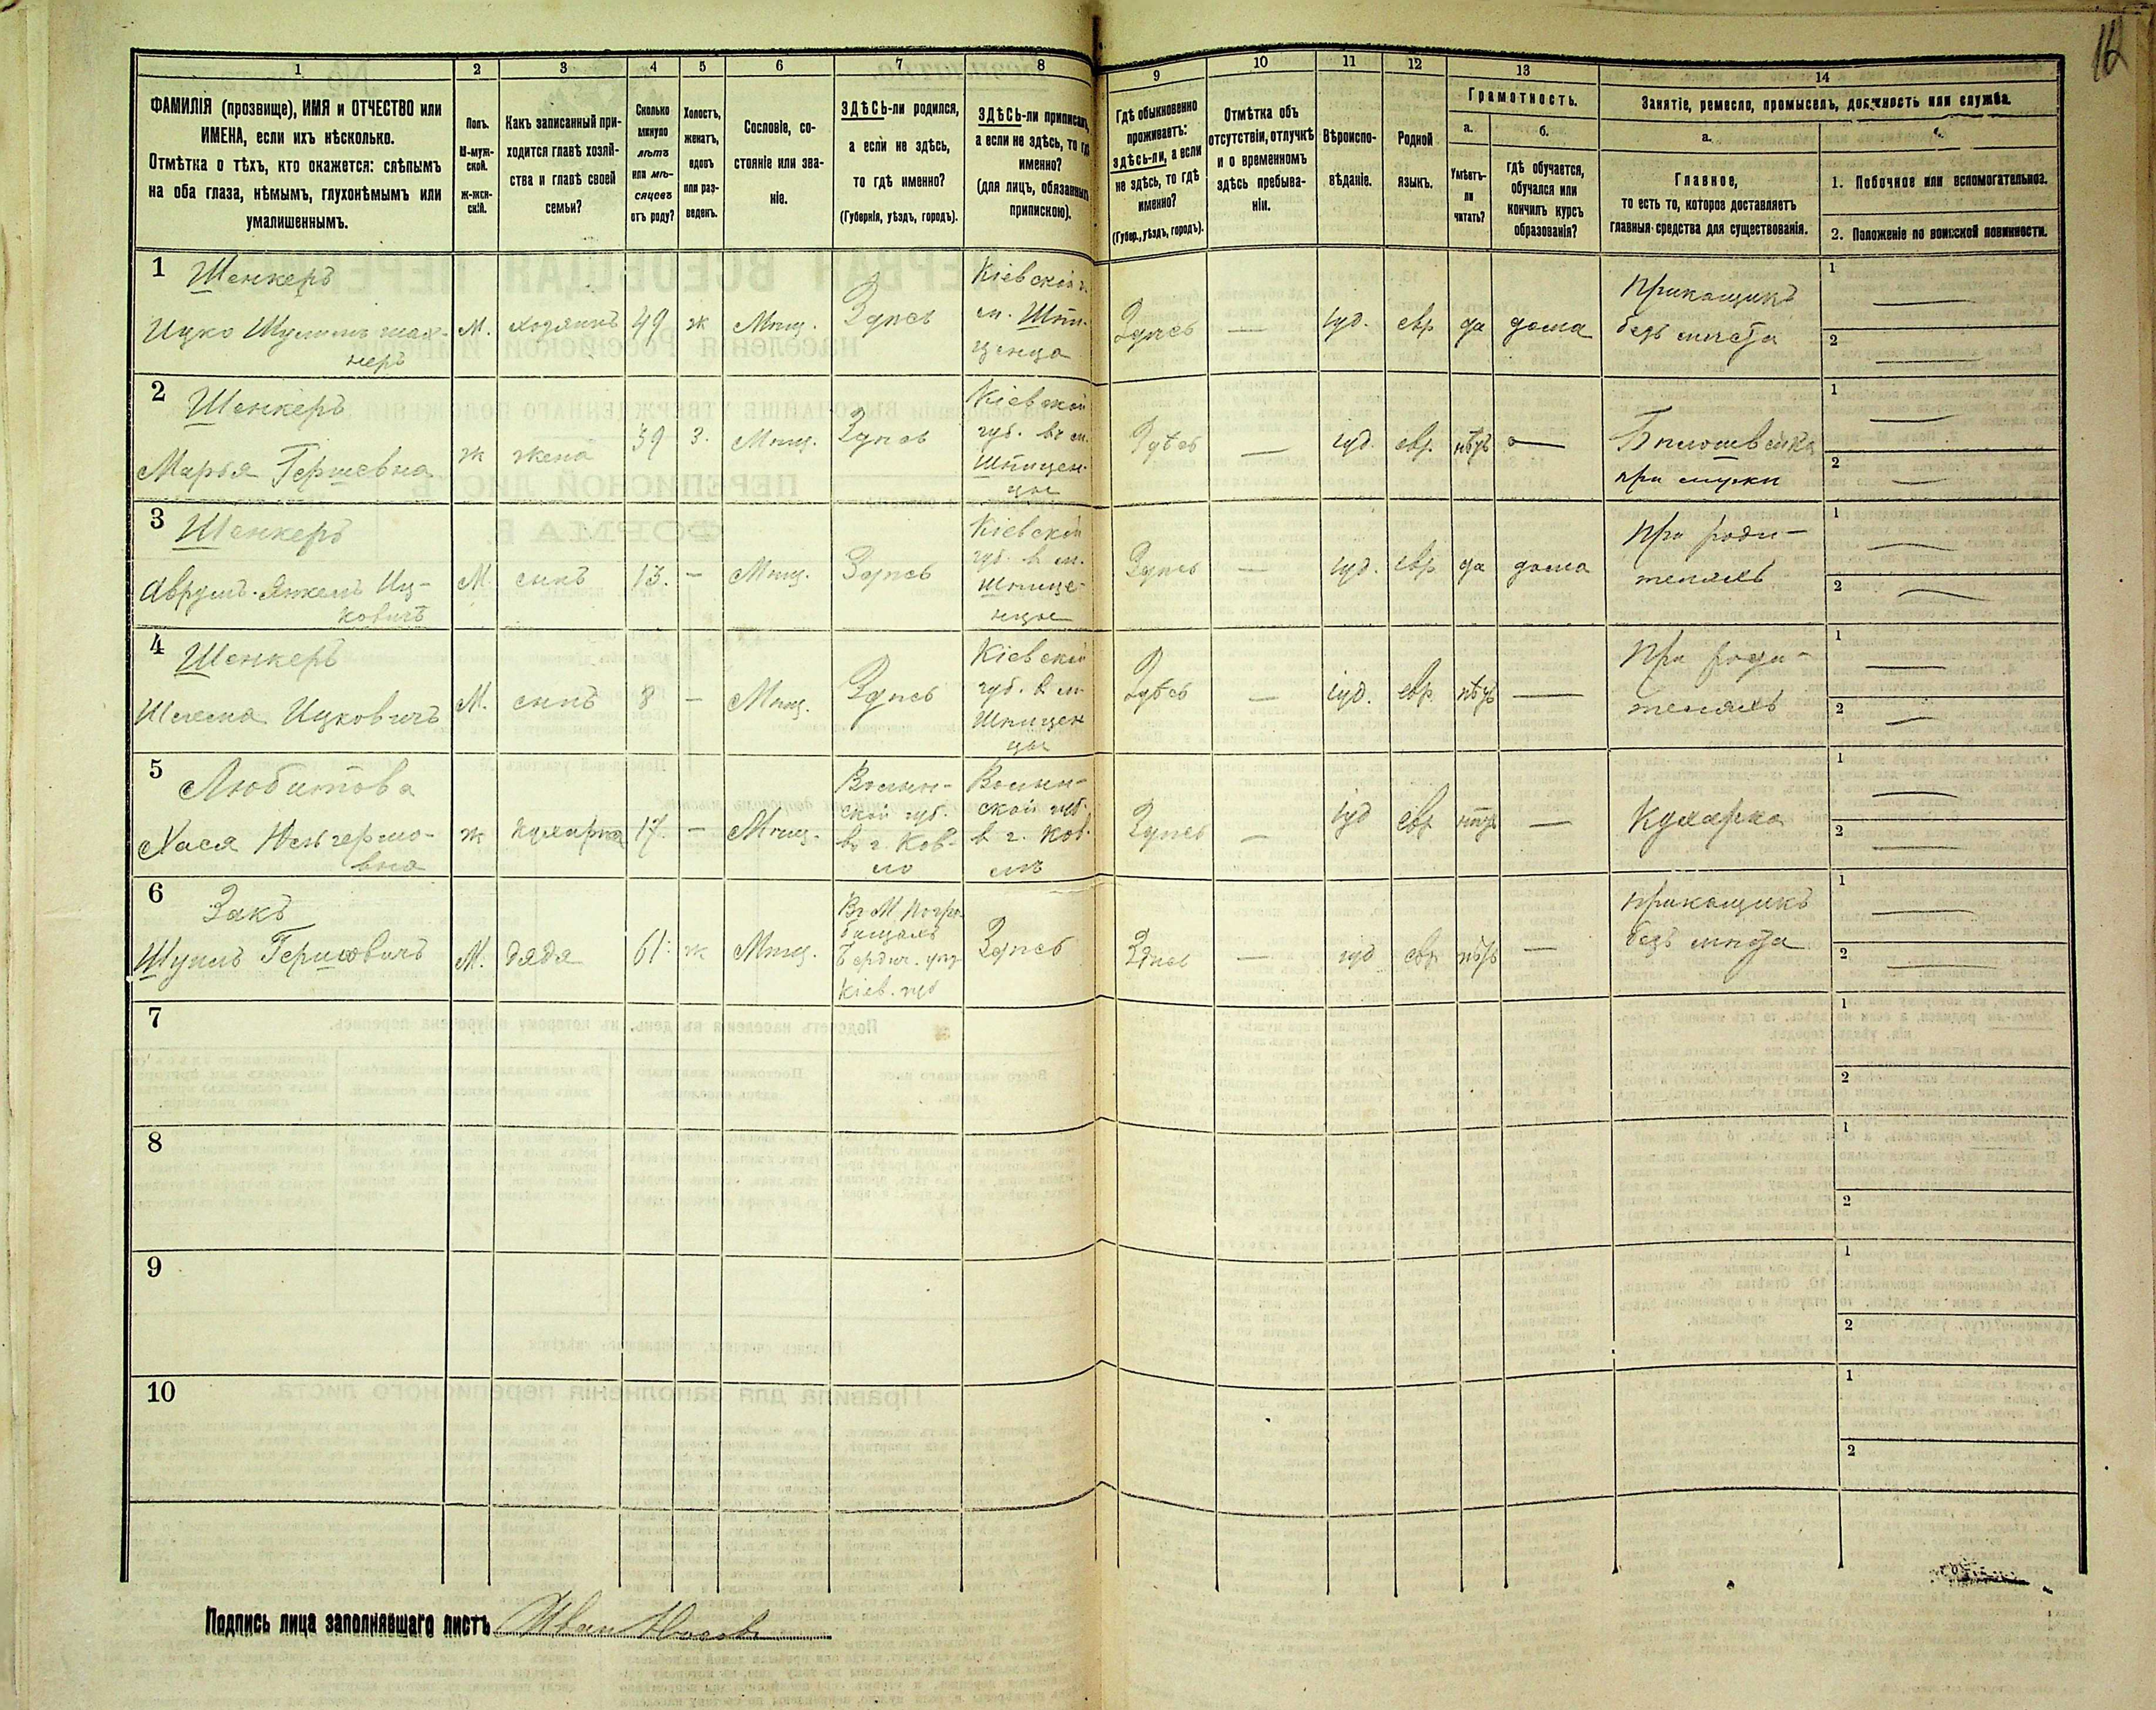 16
1 2 3 4 5 6 7 8 9 10 11 12 13 14
ФАМИЛІЯ (прозвище), ИМЯ и ОТЧЕСТВО или
ИМЕНА, если ихъ нѣсколько.
Отмѣтка о тѣхъ, кто окажется: слѣпымъ
на оба глаза, нѣмымъ, глухонѣмымъ или
умалишеннымъ.
Полъ.
М-муж-
ской.
ж-жен-
скій.
Какъ записанный при-
ходится главѣ хозяй-
ства и главѣ своей
семьи?
Сколько
минуло
лѣтъ
или мѣ-
сяцевъ
отъ роду?
Холостъ,
женатъ,
вдовъ
или раз-
веденъ.
Сословіе, со-
стояніе или зва-
ніе.
ЗДѢСЬ-ли родился,
а если не здѣсь,
то гдѣ именно?
(Губернія, уѣздъ, городъ).
ЗДѢСЬ-ли приписанъ,
а если не здѣсь, то гдѣ
именно?
(для лицъ, обязанныхъ
припискою).
Гдѣ обыкновенно
проживаетъ:
здѣсь-ли, а если
не здѣсь, то гдѣ
именно?
(Губер., уѣздъ, городъ).
Отмѣтка объ
отсутствіи, отлучкѣ
и о временномъ
здѣсь пребыва-
ніи.
Вѣроиспо-
вѣданіе.
Родной
языкъ.
Грамотность.
а.
б.
Умѣетъ-
ли
читать?
гдѣ обучается,
обучался или
кончилъ курсъ
образованія?
Занятіе, ремесло, промыселъ, должность или служба.
а.
Главное,
то есть то, которое доставляетъ
главныя средства для существованія.
1. Побочное или вспомогательное.
2. Положеніе по воинской повинности.
1 Шенкеръ
Ицко
М. хозяинъ 49 ж Мѣщ. Здѣсь
Кіевской г.
м. Шпи-
ченца
Здѣсь — іуд. евр да дома
Прикащикъ
безъ мѣста
1 —
2 —
2 Шенкеръ
Марья Гершевна
ж жена 39 з. Мѣщ. Здѣсь
Кіевской
губ. въ м.
Шпичен-
цы
Здѣсь — іуд. евр. нѣтъ —
Бѣлошвейка
при мужѣ
1 —
2 —
3 Шенкеръ
Аврумъ-Янкель Иц-
ковичъ
М. сынъ 13. — Мѣщ. Здѣсь
Кіевской
губ. в м.
Шпиче-
нцы
Здѣсь — іуд. евр. да дома
При роди-
теляхъ
1 —
2 —
4 Шенкеръ
Шлема Ицковичъ
М. сынъ 8 — Мѣщ. Здѣсь
Кіевской
губ. в м
Шпичен
цы
Здѣсь — іуд. евр. нѣтъ —
При роди-
теляхъ
1 —
2 —
5 Любитова
Хася
вна
ж кухарка 17. — Мѣщ.
Волын-
ской губ.
въ г. Ков-
лѣ
Волын-
ской губ.
в г. Ков-
лѣ
Здѣсь — іуд евр нѣтъ —
Кухарка
1 —
2 —
6 Закъ
Шулимъ Гершковичъ
М. дядя 61. ж Мѣщ.
Въ М. Погре-
бищахъ
Бердич. уѣз
Кіев. губ
Здѣсь
Здѣсь — іуд евр. нѣтъ —
Прикащикъ
безъ мѣста
1 —
2 —
7
1
2
8
1
2
9
1
2
10
1
2
Подпись лица заполнявшаго листъ Иван Носовъ